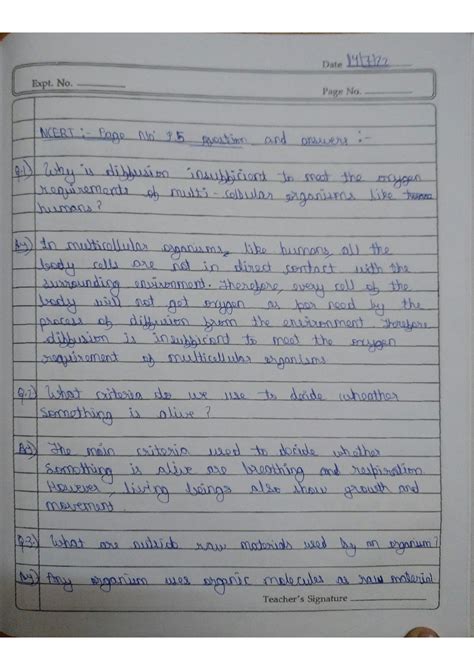 Date 14/7/22
Expt. No.
Page No.
NCERT :- Page No. 95 question and answers :-
Q.1) Why is diffusion insufficient to meet the oxygen
requirements of multi-cellular organisms like
humans?
Ans) In multicellular organisms, like humans, all the
body cells are not in direct contact with the
surrounding environment. Therefore, every cell of the
body will not get oxygen as per need by the
process of diffusion from the environment. Therefore
diffusion is insufficient to meet the oxygen
requirement of multicellular organisms
Q.2) What criteria do we use to decide wheather
something is alive?
As) The main criteria used to decide whether
something is alive are breathing and respiration
However, living beings also show growth and
movement
Q.3) What are outside raw materials used by an organism?
Any organism uses organic molecules as raw material
Teacher's Signature